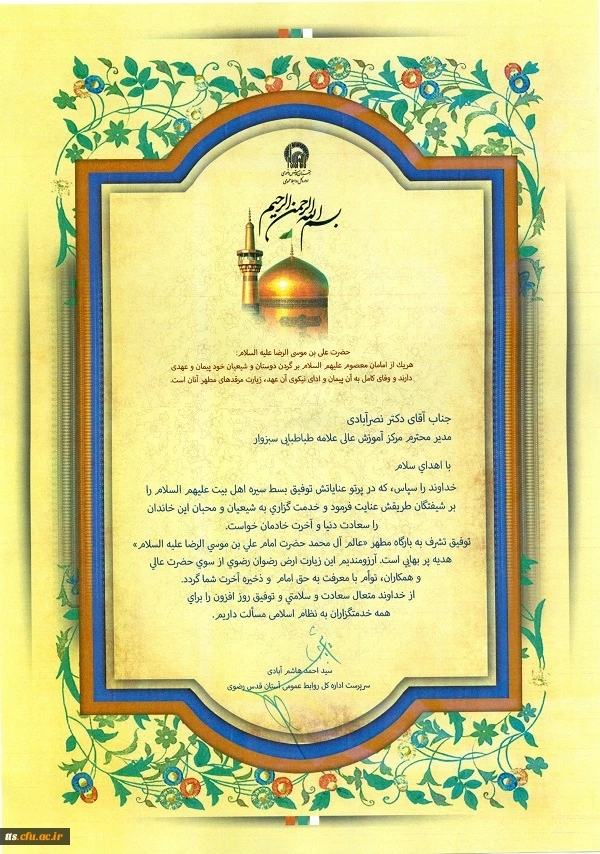 آستان قدس رضوی
اداره کل روابط عمومی
بسم الله الرحمن الرحیم
حضرت علی بن موسی الرضا علیه السلام:
هریك از امامان معصوم علیهم السلام بر گردن دوستان و شیعیان خود پیمان و عهدی
دارند و وفای کامل به آن پیمان و ادای نیکوی آن عهد، زیارت مرقدهای مطهر آنان است.
جناب آقای دکتر نصرآبادی
مدیر محترم مرکز آموزش عالی علامه طباطبایی سبزوار
با اهداي سلام
خداوند را سپاس، که در پرتو عنایاتش توفیق بسط سیره اهل بیت علیهم السلام را
بر شیفتگان طریقش عنایت فرمود و خدمت گزاري به شیعیان و محبان این خاندان
را سعادت دنیا و آخرت خادمان خواست.
توفیق تشرف به بارگاه مطهر «عالم آل محمد حضرت امام علي بن موسي الرضا علیه السلام»
هدیه پر بهایي است. آرزومندیم این زیارت ارض رضوان رضوي از سوي حضرت عالي
و همکاران، توأم با معرفت به حق امام و ذخیره آخرت شما گردد.
از خداوند متعال سعادت و سلامتي و توفیق روز افزون را براي
همه خدمتگزاران به نظام اسلامی مسألت داریم.
سید احمد هاشم آبادی
سرپرست اداره کل روابط عمومی آستان قدس رضوی
tts.cfu.ac.ir